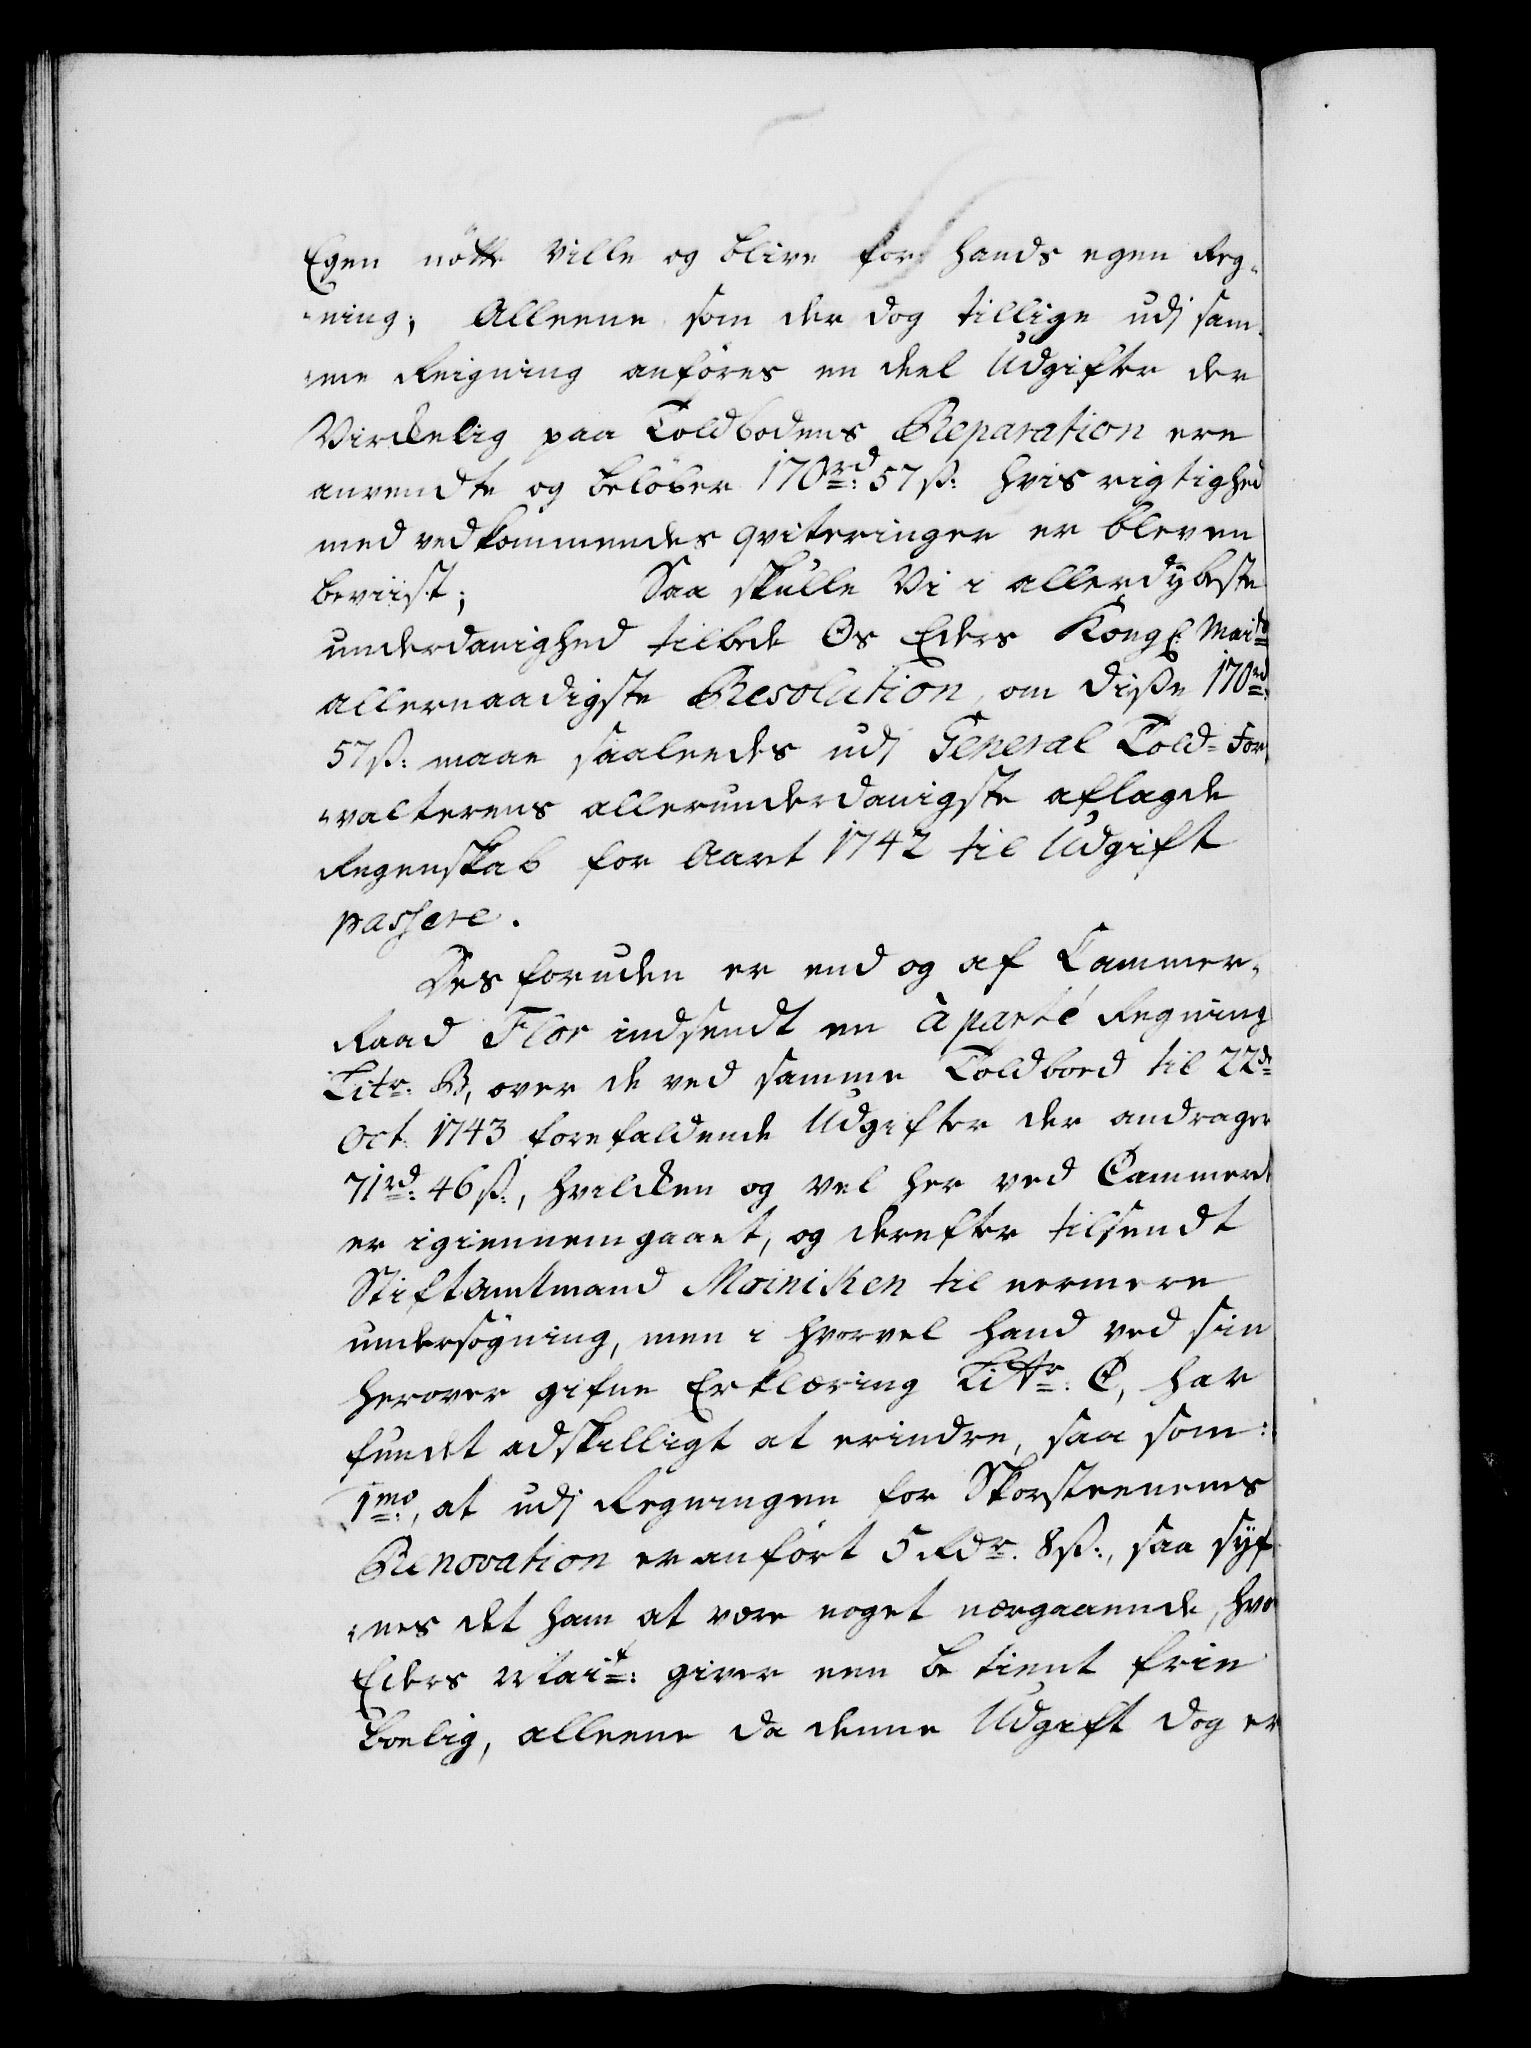 Egen nötte ville og blive for hands egen Reg-
-ning; Alleene som der dog tillige udj sam-
-me Reigning anföres en deel Udgifter der
Virckelig paa Toldbodens Reparation ere
anvendte og beløber 170rd: 57ß: hvis rigtighed
med vedkommendes qviteringer er bleven
beviist; Saa skulle Vi i allerdybeste
underdanighed tilbede Os Eders Kongl: Maits
allernaadigste Resolution, om diße 170rd:
57ß: maae saaleedes udj General Told-For-
-valterens allerunderdanigste aflagde
Regenskab for Aaret 1742 til Udgift
passere.
Des foruden er end og af Cammer-
Raad Flor indsendt en à parte Regning
Litr: B, over de ved samme Toldboed til 22de
Oct: 1743 forefaldende Udgifter der andrager
71rd: 46ß:, hvilcken og vel her ved Cammeret
er igiennemgaaet, og derefter tilsendt
Stiftamtmand Moiniken til nermere
undersögning, men i hvorvel hand ved sin
herover gifne Erklæring Littr: C, har
fundet adskilligt at erindre, saa som:
1mo:, at udj Regningen for Skorsteenens
Renovation er anfört 5 Rdr. 8ß:, saa syf-
-nes det ham at være noget nærgaaende, hvor
Eders Mait: giver een betient frie
boelig, alleene da denne Udgift dog er